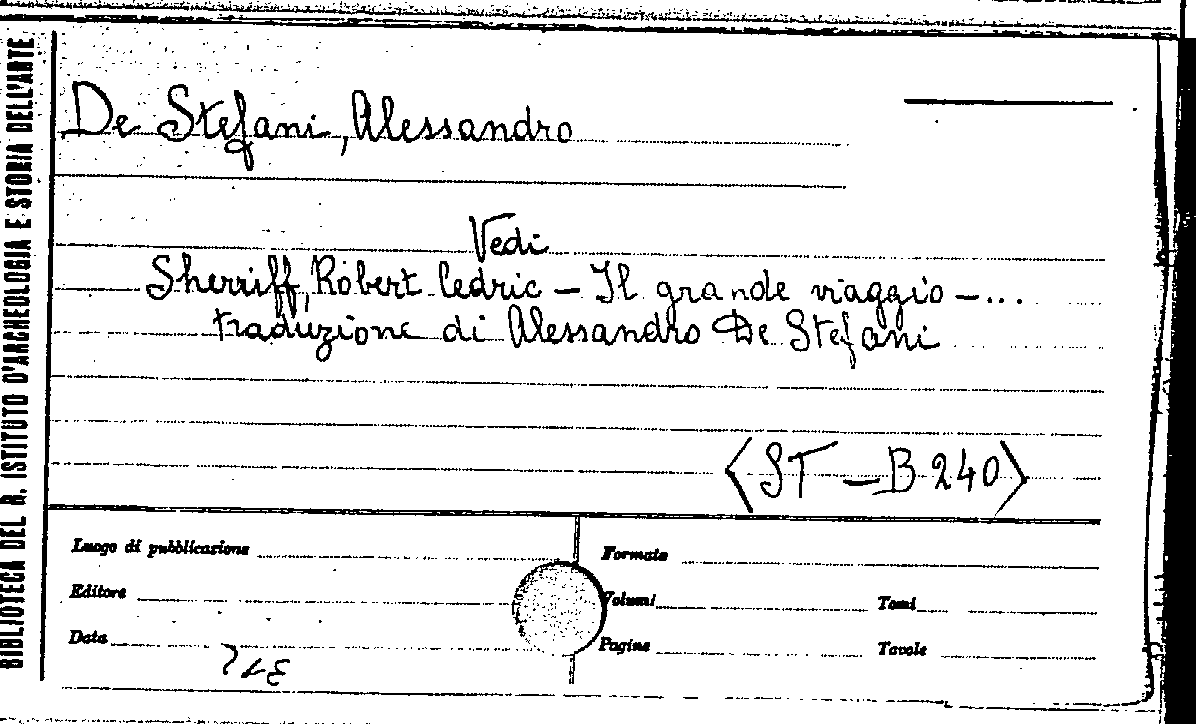 BIBLIOTECA DEL R. ISTITUTO D'ARCHEOLOGIA E STORIA DELL'ARTE
De Stefani, Alessandro
Vedi
Sherriff, Robert Cedric – Il grande viaggio – ...
traduzione di Alessandro De Stefani
<ST – B 240>
Luogo di pubblicazione
Formato
Editore
Volumi
Tomi
Data
Pagine
Tavole